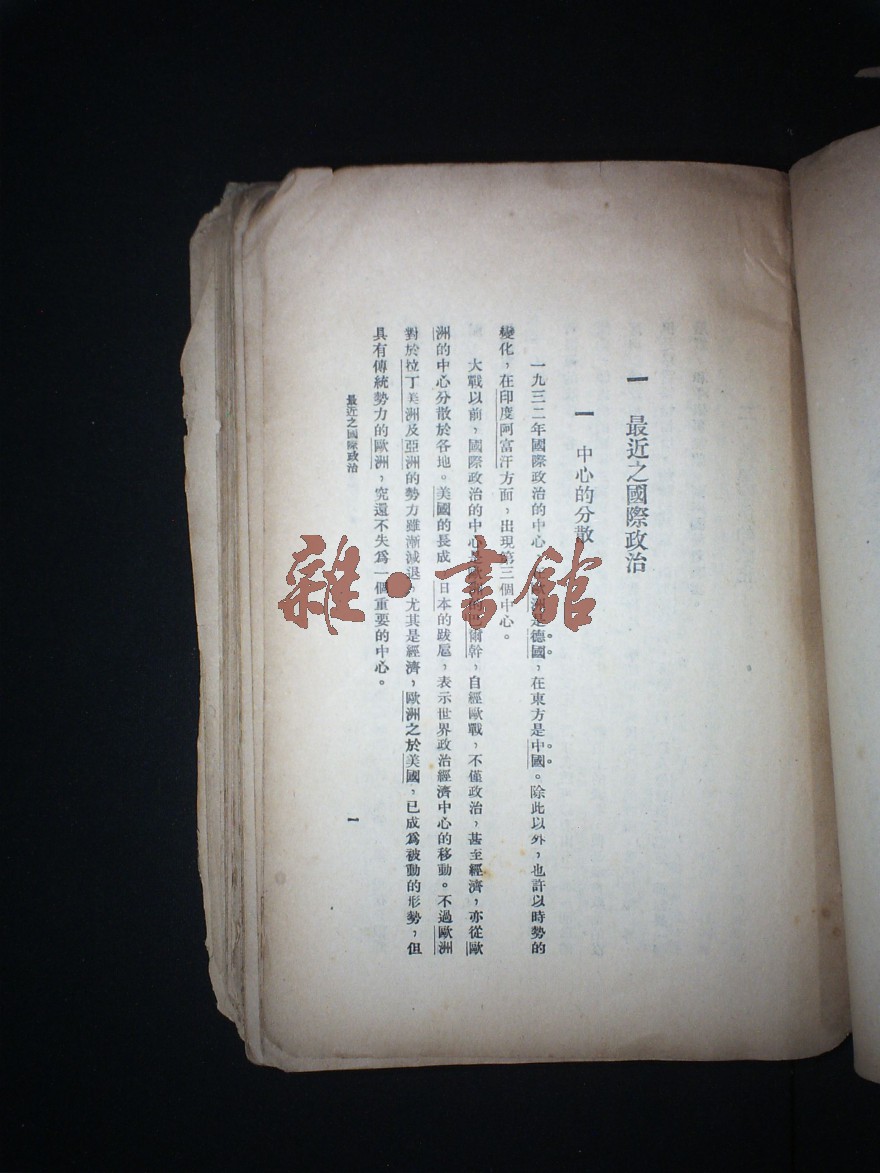 一　最近之國際政治
一　中心的分散
一九三二年國際政治的中心，歐洲是德國，在東方是中國。除此以外，也許以時勢的
變化，在印度阿富汗方面，出現第三個中心。
大戰以前，國際政治的中心是歐洲的巴爾幹，自經歐戰，不僅政治，甚至經濟，亦從歐
洲的中心分散於各地。美國的長成，日本的跋扈，表示世界政治經濟中心的移動。不過歐洲
對於拉丁美洲及亞洲的勢力雖漸減退，尤其是經濟，歐洲之於美國，已成爲被動的形勢，但
具有傳統勢力的歐洲，究還不失爲一個重要的中心。
最近之國際政治
一
雜·書館